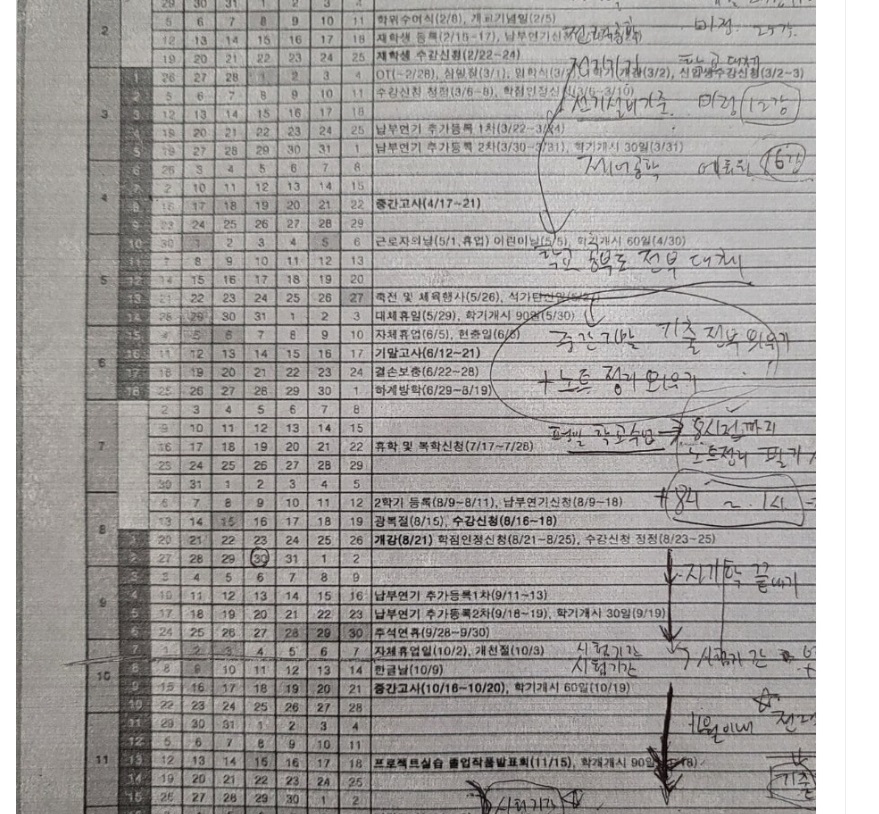 29 30 31 1 2 3 4
2 5 6 7 8 9 10 11 학위수여식(2/8), 개교기념일(2/5)
12 13 14 15 16 17 18 재학생 등록(2/15~17), 납부연기신청
19 20 21 22 23 24 25 재학생 수강신청(2/22~24)
1 26 27 28 1 2 3 4 OT(~2/28), 삼일절(3/1), 입학식(3/ 개강(3/2), 신입생수강신청(3/2~3)
2 5 6 7 8 9 10 11 수강신청 정정(3/6~8), 학점인정신청(3/6~3/10)
3 3 12 13 14 15 16 17 18
4 19 20 21 22 23 24 25 납부연기 추가등록 1차(3/22~3/24)
5 26 27 28 29 30 31 1 납부연기 추가등록 2차(3/30~3/31), 학기개시 30일(3/31)
6 2 3 4 5 6 7 8
4 7 9 10 11 12 13 14 15
8 16 17 18 19 20 21 22 중간고사(4/17~21)
9 23 24 25 26 27 28 29
10 30 1 2 3 4 5 6 근로자의날(5/1,휴업) 어린이날(5/5), 학기개시 60일(4/30)
11 7 8 9 10 11 12 13
5 12 14 15 16 17 18 19 20
13 21 22 23 24 25 26 27 축전 및 체육행사(5/26), 석가탄신일(5/27)
14 28 29 30 31 1 2 3 대체휴일(5/29), 학기개시 90일(5/30)
15 4 5 6 7 8 9 10 자체휴업(6/5), 현충일(6/6)
6 16 11 12 13 14 15 16 17 기말고사(6/12~21)
17 18 19 20 21 22 23 24 결손보충(6/22~28)
18 25 26 27 28 29 30 1 하계방학(6/29~8/19)
2 3 4 5 6 7 8
9 10 11 12 13 14 15
7 16 17 18 19 20 21 22 휴학 및 복학신청(7/17~7/28)
23 24 25 26 27 28 29
30 31 1 2 3 4 5
6 7 8 9 10 11 12 2학기 등록(8/9~8/11), 납부연기신청(8/9~18)
8 13 14 15 16 17 18 19 광복절(8/15), 수강신청(8/16~18)
1 20 21 22 23 24 25 26 개강(8/21) 학점인정신청(8/21~8/25), 수강신청 정정(8/23~25)
2 27 28 29 30 31 1 2
3 3 4 5 6 7 8 9
9 4 10 11 12 13 14 15 16 납부연기 추가등록1차(9/11~13)
5 17 18 19 20 21 22 23 납부연기 추가등록2차(9/18~19), 학기개시 30일(9/19)
6 24 25 26 27 28 29 30 추석연휴(9/28~9/30)
7 1 2 3 4 5 6 7 자체휴업일(10/2), 개천절(10/3)
10 8 8 9 10 11 12 13 14 한글날(10/9)
9 15 16 17 18 19 20 21 중간고사(10/16~10/20), 학기개시 60일(10/19)
10 22 23 24 25 26 27 28
11 29 30 31 1 2 3 4
12 5 6 7 8 9 10 11
11 13 12 13 14 15 16 17 18 프로젝트실습 졸업작품발표회(11/15), 학개개시 90일
14 19 20 21 22 23 24 25
15 26 27 28 29 30 1 2
미정
전자기학
학교 대체
전기설비기준 미정 12강
제어공학 에듀윌 16강
학교 공부로 전부 대체
주간 기말 기출 전부 외우기
+ 노트 정리 외우기
평일 학교수업 → 8시전까지
노트정리
시험기간
시험기간
시험기간
전자기학 끝내기
기출
시험기간